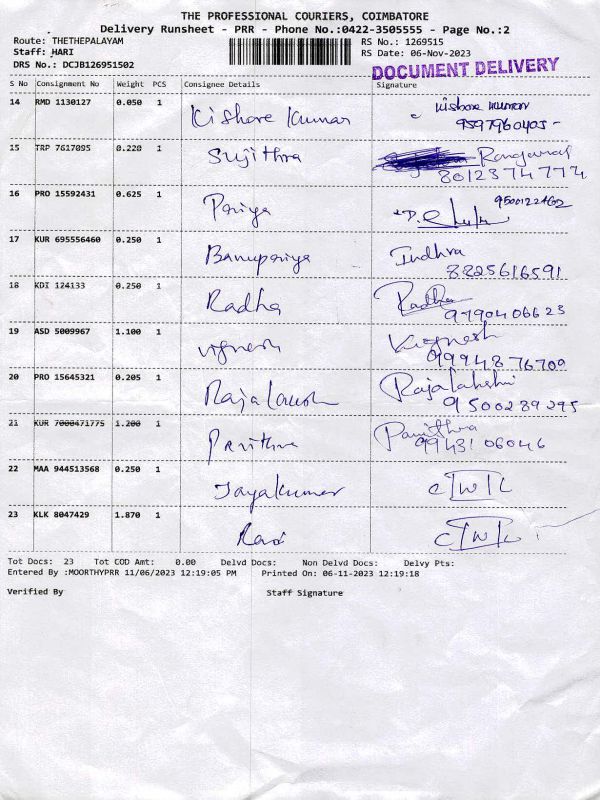 THE PROFESSIONAL COURIERS, COIMBATORE
Delivery Runsheet - PRR - Phone No.:0422-3505555 - Page No.:2
Route: THETHEPALAYAM
Staff: HARI
DRS No.: DCJB126951502
RS No.: 1269515
RS Date: 06-Nov-2023
DOCUMENT DELIVERY
S No Consignment No Weight PCS Consignee Details Signature
14 RMD 1130127 0.050 1 Kishore Kumar Kishore Kumar
9597960405-
15 TRP 7617095 0.220 1 Sujithra
8012374774
16 PRO 15592431 0.625 1 Priya
17 KUR 695556460 0.250 1 Banupriya Indhra
8825616591
18 KDI 124133 0.250 1 Radha Radha
9790406623
19 ASD 5009967 1.100 1 Vignesh Vignesh
9994876709
20 PRO 15645321 0.205 1 Rajalakshmi
9500289295
21 KUR 7000471775 1.200 1 Pavithra Pavithra
9943106046
22 MAA 944513568 0.250 1 Jayakumar
23 KLK 8047429 1.870 1 Ravi
Tot Docs: 23 Tot COD Amt: 0.00 Delvd Docs: Non Delvd Docs: Delvy Pts:
Entered By :MOORTHYPRR 11/06/2023 12:19:05 PM Printed On: 06-11-2023 12:19:18
Verified By Staff Signature